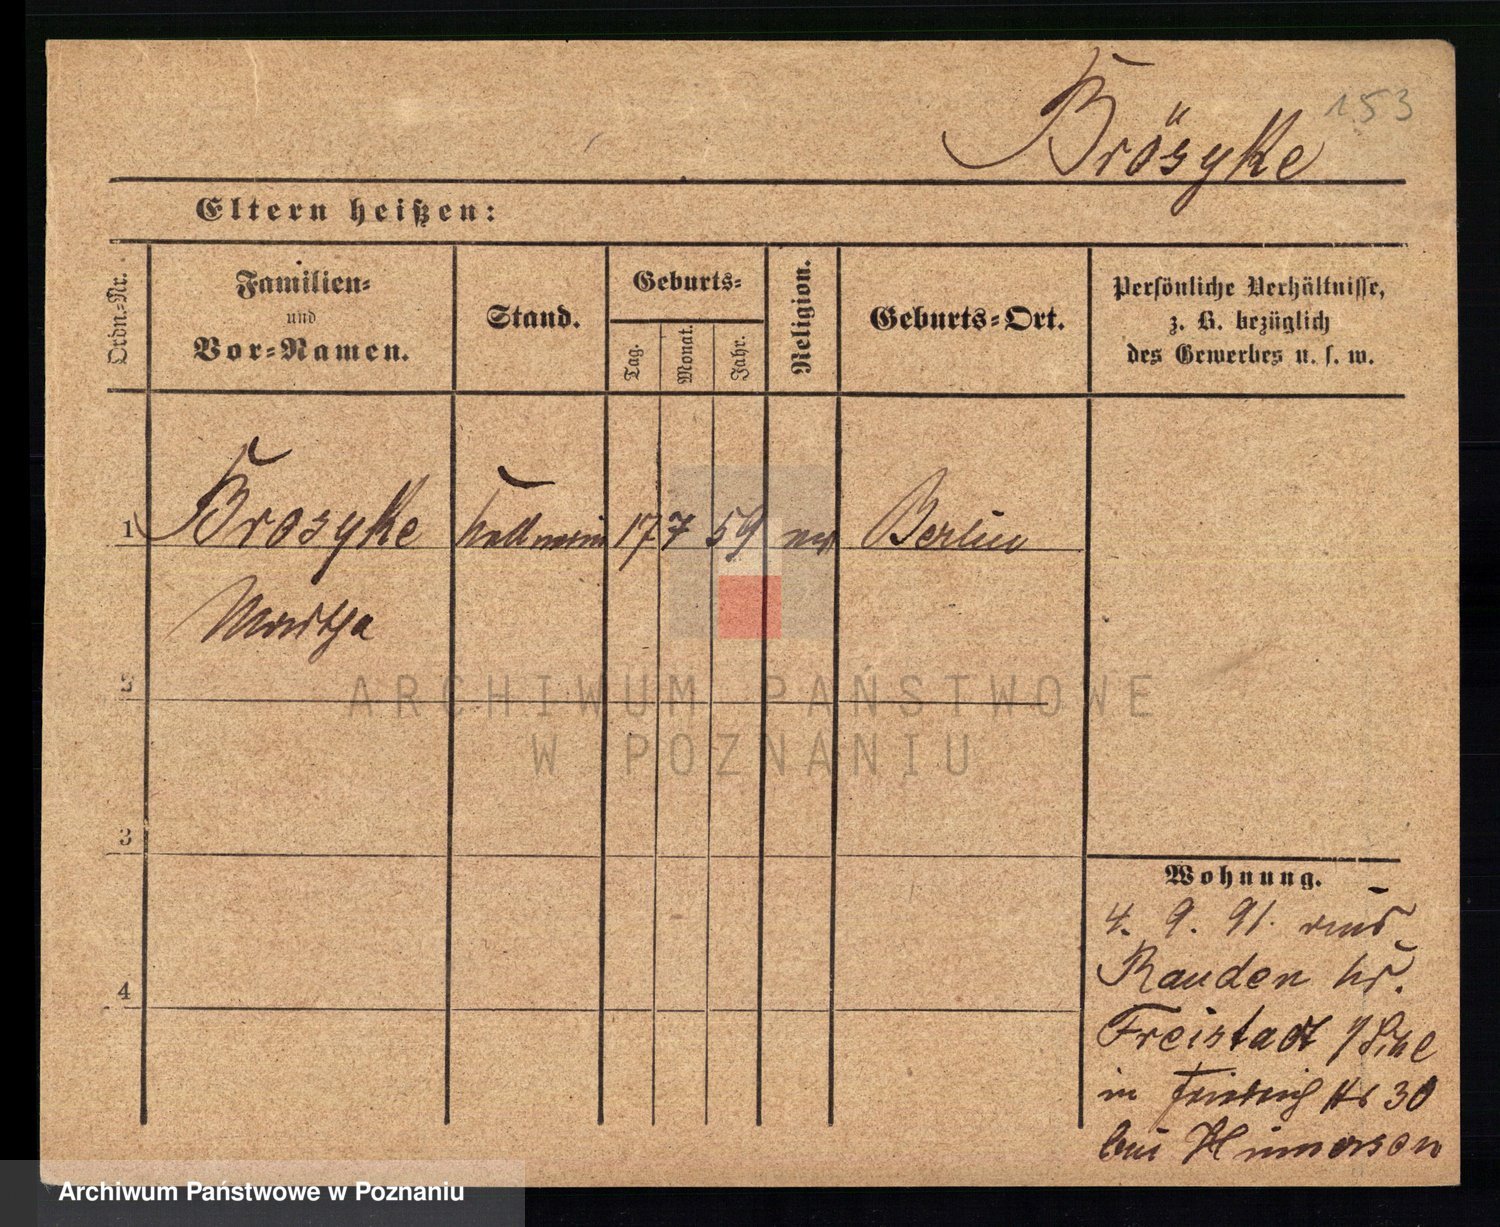 153
Brösyke
Eltern heißen:
Ordn.-Nr.
Familien-
und
Vor-Namen.
Stand.
Geburts-
Tag.
Monat.
Jahr.
Religion.
Geburts-Ort.
Persönliche Verhältnisse,
z. B. bezüglich
des Gewerbes u. s. w.
1 Brosyke 17 7 59 ev Berlin
Martha
2
3
4
Wohnung.
4. 9. 91. aus
Rauden Kr.
Freistadt
in Friedrich Str 30
bei
ARCHIWUM PAŃSTWOWE
W POZNANIU
Archiwum Państwowe w Poznaniu